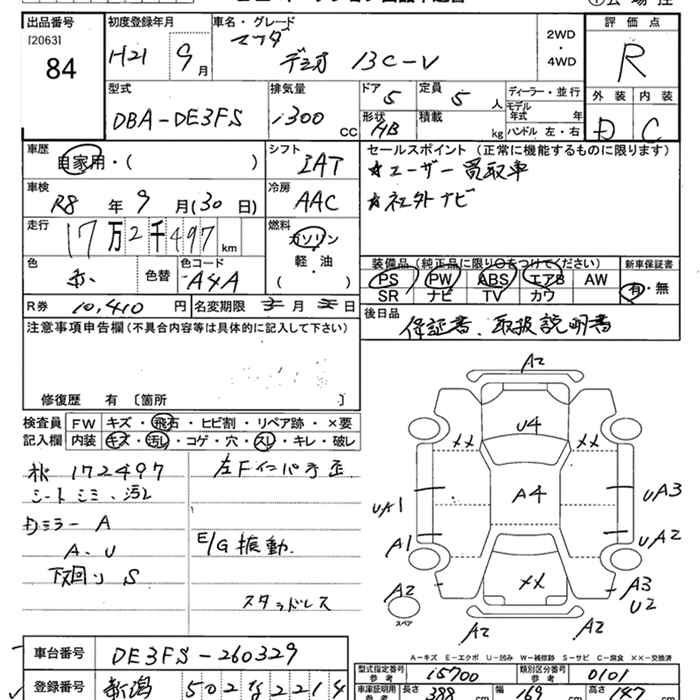 出品番号
[2063]
84
初度登録年月
H21 9月
車名・グレード
マツダ
デミオ 13C-V
2WD
・
4WD
評価点
R
外装 内装
D C
型式
DBA-DE3FS
排気量
1300 cc
ドア 5
定員 5人
形状 HB
積載 kg
ディーラー・並行
モデル年式 年式
ハンドル 左・右
車歴
自家用・( )
シフト
IAT
セールスポイント (正常に機能するものに限ります)
★ユーザー買取車
★社外ナビ
車検
R8年 9月(30日)
冷房
AAC
走行
17万2千497km
燃料
ガソリン
軽・油
( )
色
赤
色替
色コード
A4A
装備品(純正品に限り○をつけてください)
PS PW ABS エアB AW
SR ナビ TV カワ
新車保証書
有・無
R券 10,410円
名変期限 月 日
後日品
保証書、取扱説明書
注意事項申告欄(不具合内容等は具体的に記入して下さい)
修復歴 有 〔箇所 〕
検査員記入欄
FW キズ・飛石・ヒビ割・リペア跡・×要
内装 キズ・汚レ・コゲ・穴・スレ・キレ・破レ
172497
シートシミ、汚レ
Dミラー A
A、U
下回り S
左Fインパネ歪
E/G振動
スタッドレス
A2
U4
XX XX
A4
UA1
UA3
A1
UA2
XX
A2
スペア
A3
U2
A2 A2
A-キズ E-エクボ U-凹み W-補修跡 S-サビ C-腐食 XX-交換済
車台番号 DE3FS-260329
登録番号 新潟 502 な 2214
型式指定番号 参考 15700
類別区分番号 参考 0101
車庫証明用 参考 長さ 388 cm 幅 169 cm 高さ 157 cm